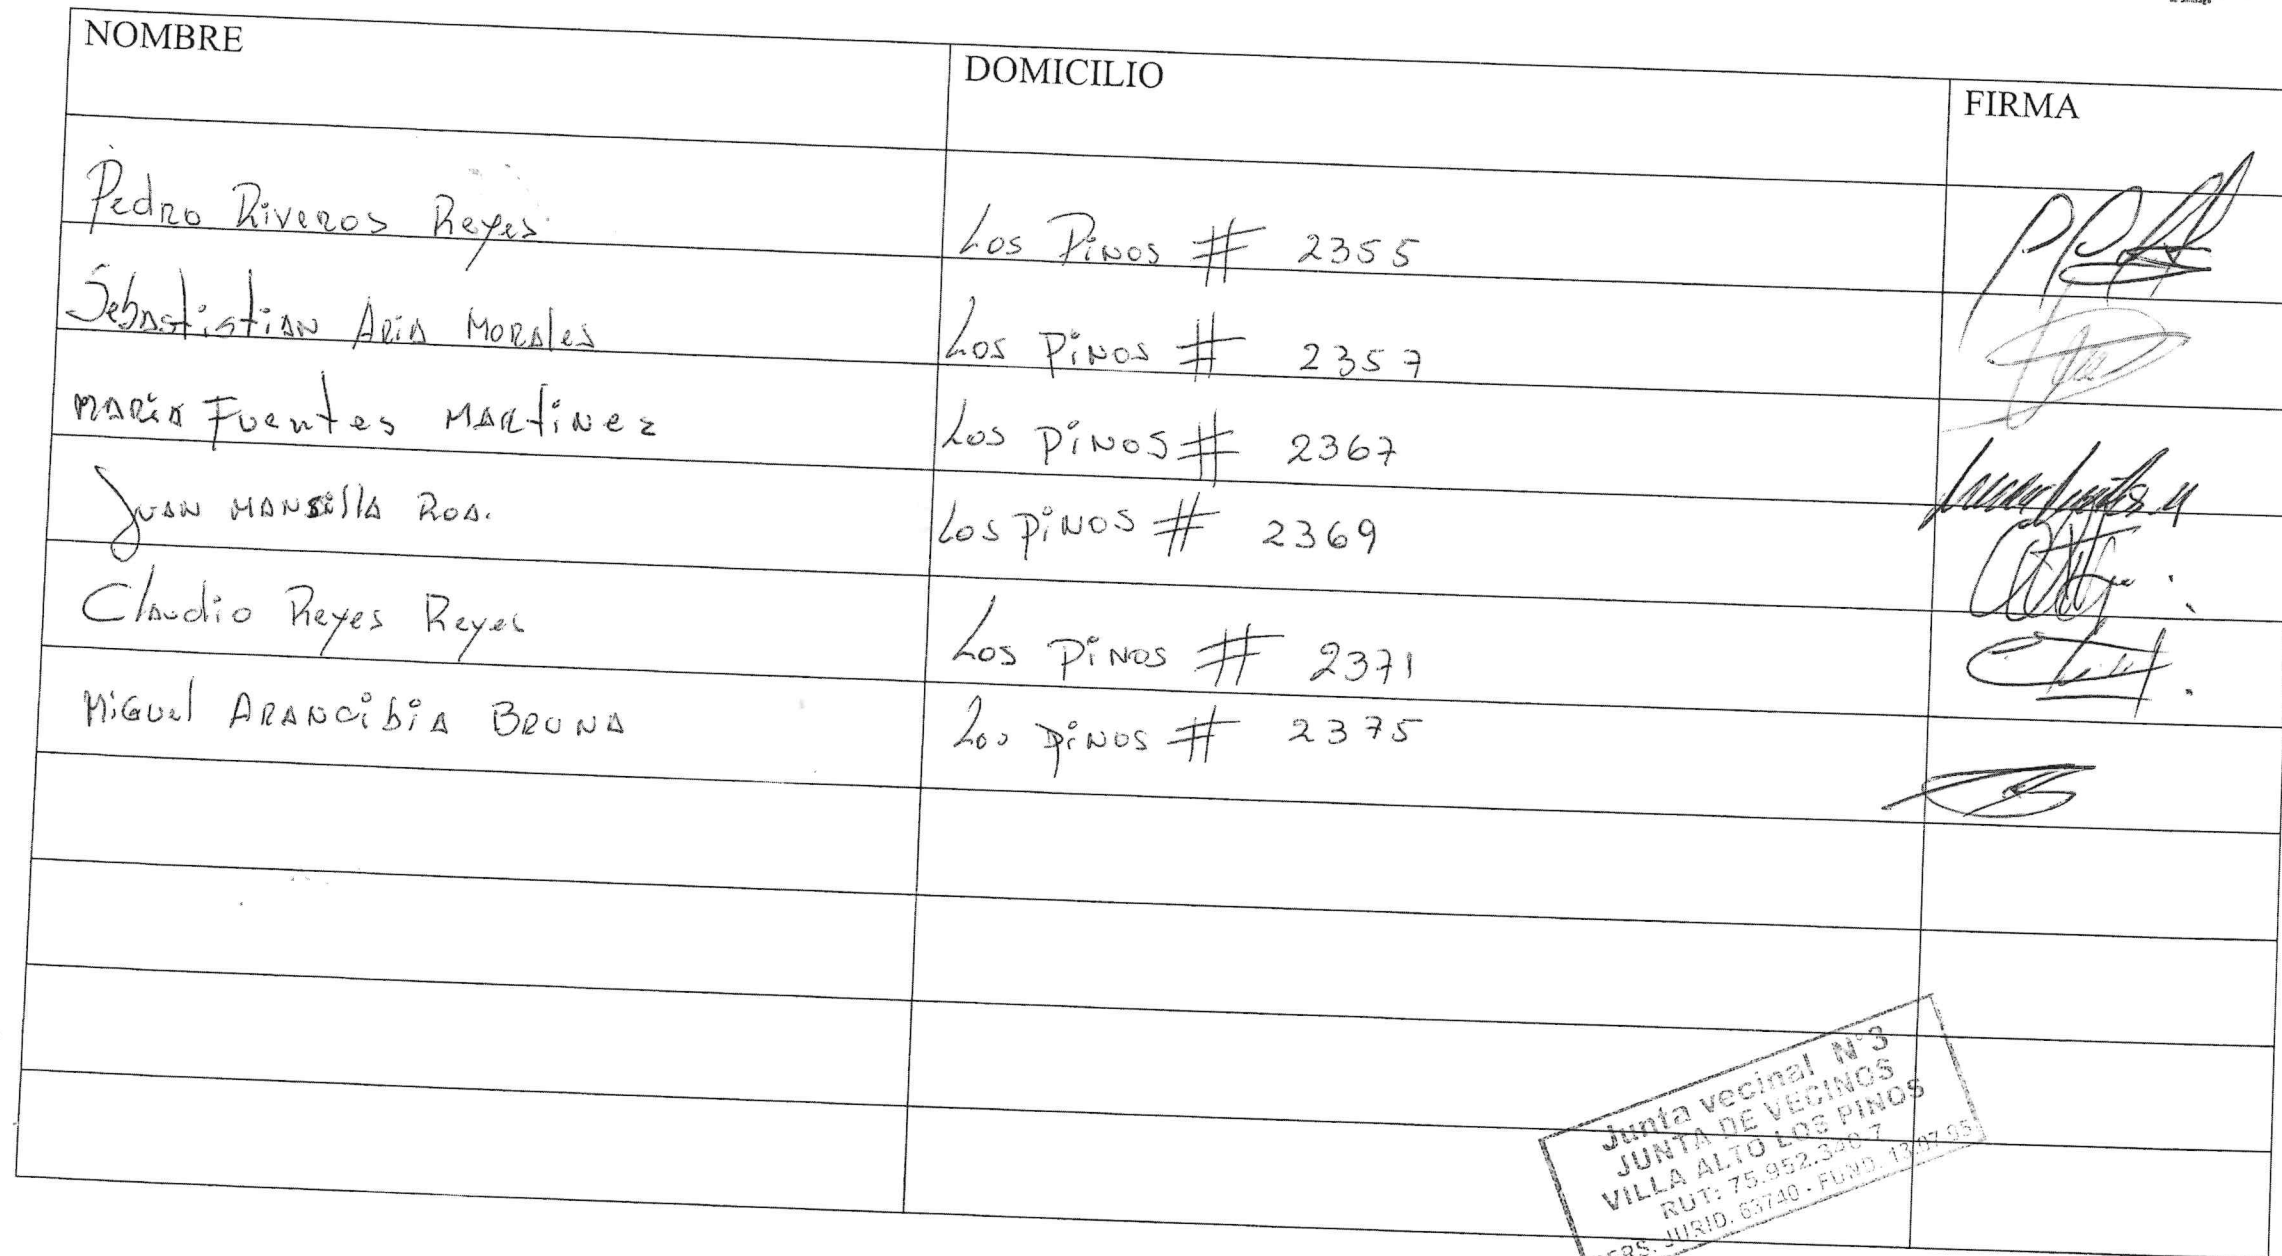 NOMBRE DOMICILIO FIRMA
Pedro Riveros Reyes Los Pinos # 2355
Sebastistian Aria Morales Los Pinos # 2357
María Fuentes Martinez Los Pinos # 2367
Juan Mansilla Roa. Los Pinos # 2369
Claudio Reyes Reyes Los Pinos # 2371
Miguel Arancibia Bruna Los Pinos # 2375
Junta vecinal N°3
JUNTA DE VECINOS
VILLA ALTO LOS PINOS
RUT: 75.952.340-7
JURID. 63740 - FUND. 13.07.95